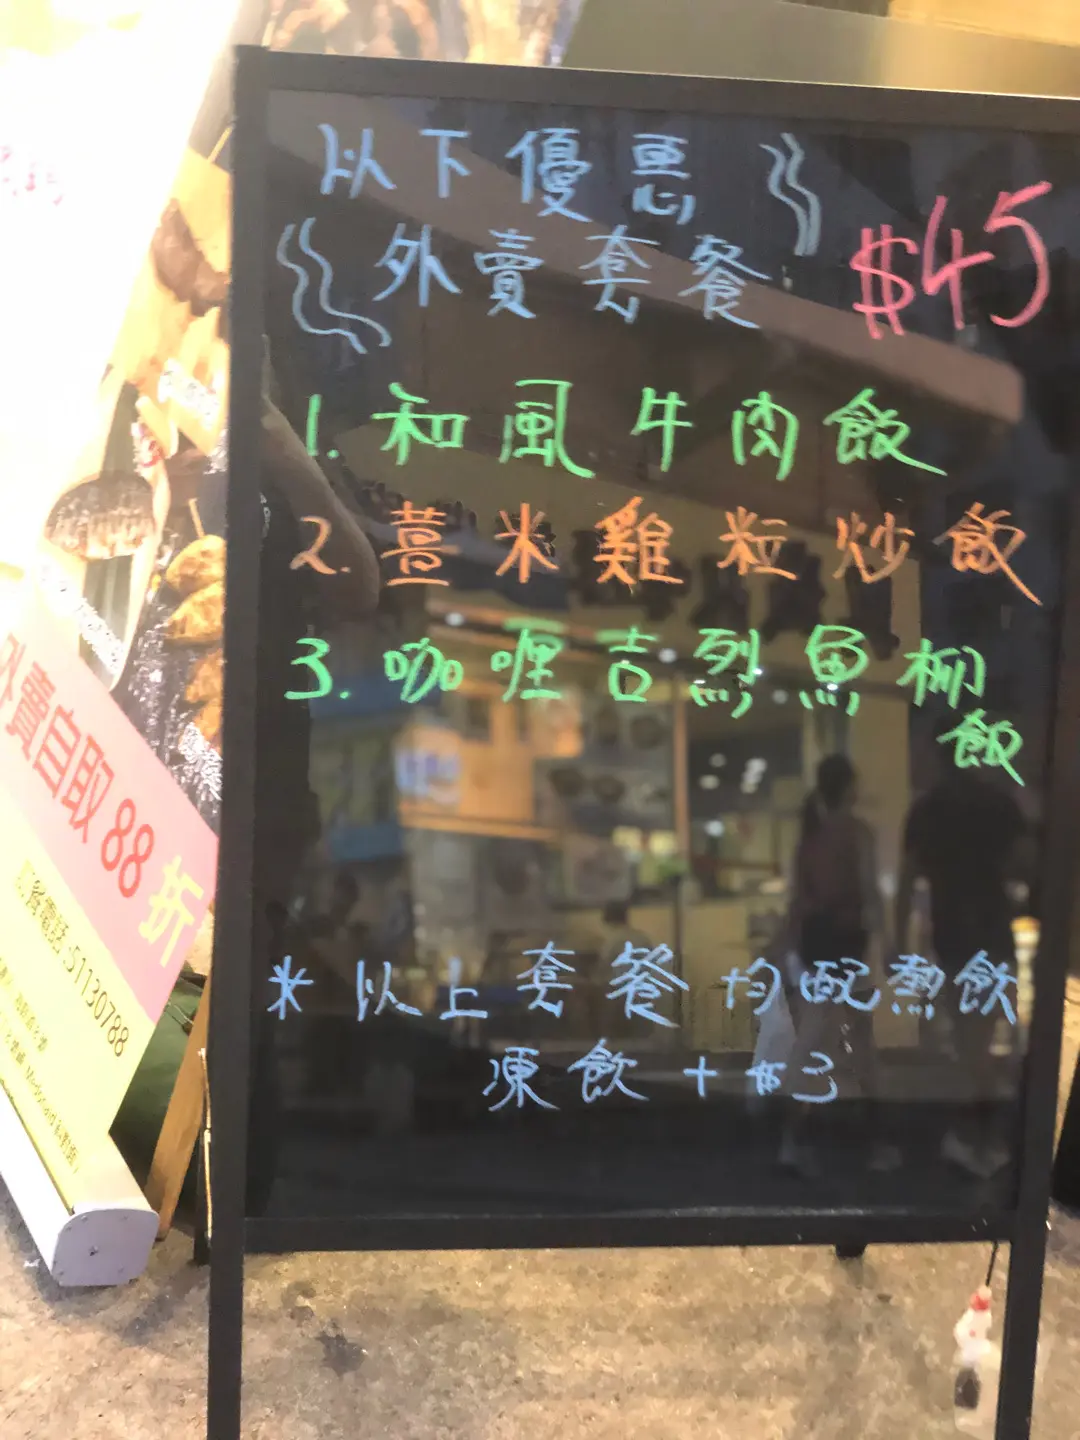 以下優惠
外賣套餐 $45
1. 和風牛肉飯
2. 薏米雞粒炒飯
3. 咖喱吉烈魚柳
飯
* 以上套餐均配熱飲
凍飲 + $3
外賣自取 88 折
餐電話:51130788